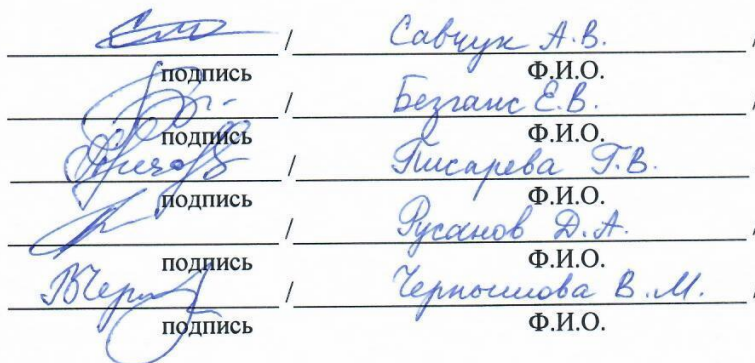 / Савчук А.В. /
подпись Ф.И.О.
/ Безганс Е.В. /
подпись Ф.И.О.
/ Писарева Т.В. /
подпись Ф.И.О.
/ Русанов Д.А. /
подпись Ф.И.О.
/ В.М. /
подпись Ф.И.О.